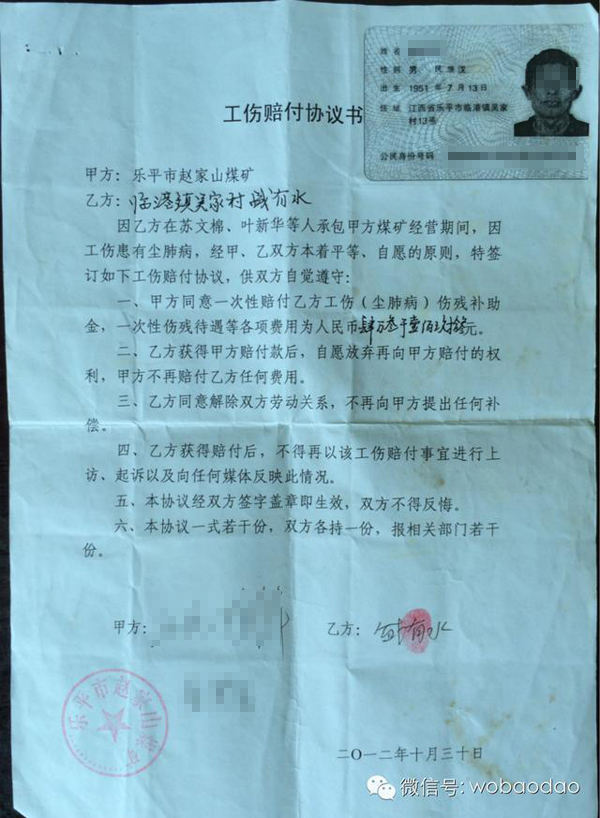 姓名
性别 男 民族 汉
出生 1951 年 7 月 13 日
住址 江西省乐平市临港镇吴家
村13号
公民身份号码
工伤赔付协议书
甲方：乐平市赵家山煤矿
乙方：临港镇吴家村 有水
因乙方在苏文棉、叶新华等人承包甲方煤矿经营期间，因
工伤患有尘肺病，经甲、乙双方本着平等、自愿的原则，特签
订如下工伤赔付协议，供双方自觉遵守：
一、甲方同意一次性赔付乙方工伤（尘肺病）伤残补助
金，一次性伤残待遇等各项费用为人民币肆万叁千壹佰玖拾元。
二、乙方获得甲方赔付款后，自愿放弃再向甲方赔付的权
利，甲方不再赔付乙方任何费用。
三、乙方同意解除双方劳动关系，不再向甲方提出任何补
偿。
四、乙方获得赔付后，不得再以该工伤赔付事宜进行上
访、起诉以及向任何媒体反映此情况。
五、本协议经双方签字盖章即生效，双方不得反悔。
六、本协议一式若干份，双方各持一份，报相关部门若干
份。
甲方：
乙方： 有水
乐平市赵家山煤矿
二〇一二年十月三十日
微信号: wobaodao